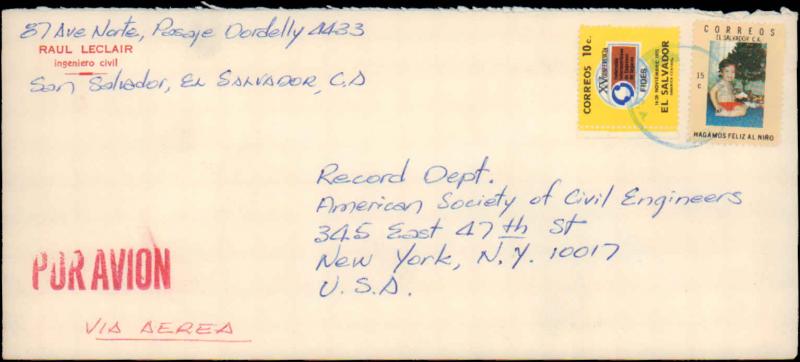 87 Ave Norte, Pasaje Dordelly 4433
RAUL LECLAIR
ingeniero civil
San Salvador, EL SALVADOR, C.A
CORREOS 10 c.
XV CONFERENCIA
FIDES
EL SALVADOR
CORREOS
EL SALVADOR C.A.
15
c
HAGAMOS FELIZ AL NIÑO
Record Dept.
American Society of Civil Engineers
345 East 47th St
New York, N.Y. 10017
U.S.A.
POR AVION
VIA AEREA